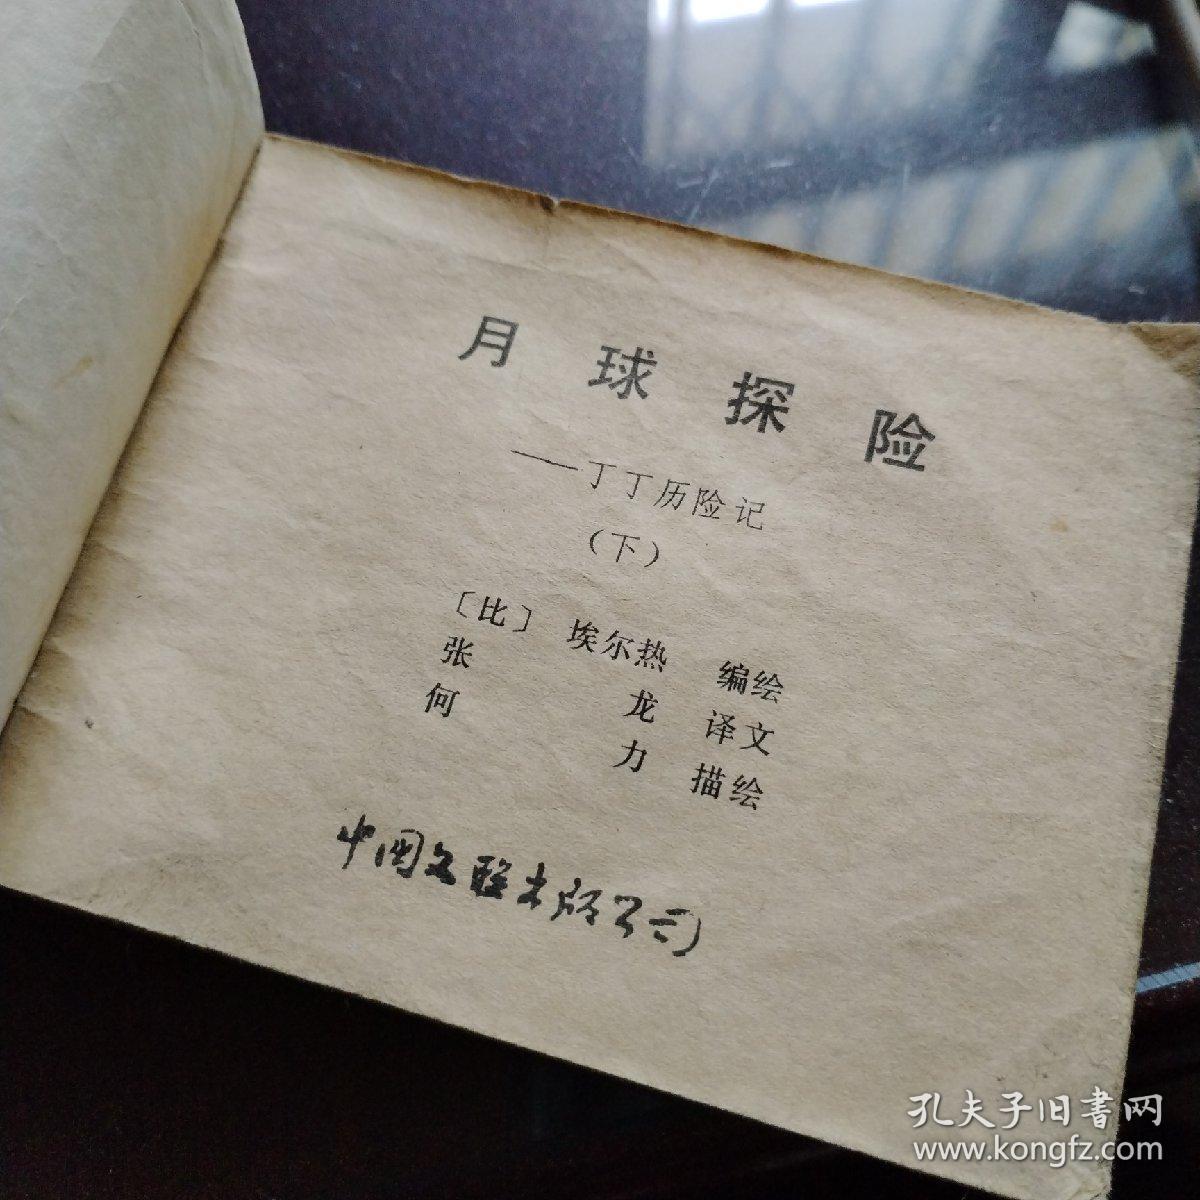 月球探险
——丁丁历险记
（下）
〔比〕 埃尔热 编绘
张龙 译文
何力 描绘
中国文联出版公司
孔夫子旧書网
www.kongfz.com